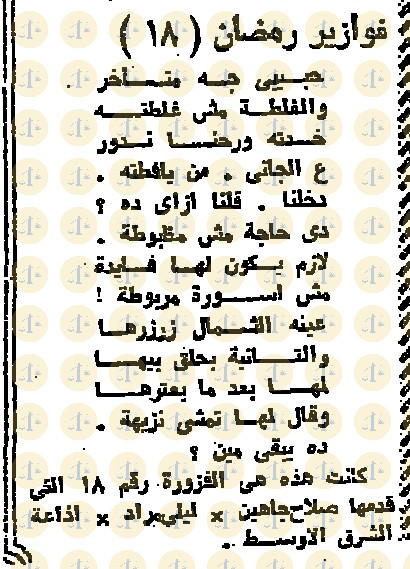 فوازير رمضان ( ١٨ )
حبيبى جه متأخر
والغلطة مش غلطته
خدته ورحنا ندور
ع الجانى . من يافطته .
دخلنا . قلنا ازاى ده ؟
دى حاجة مش مظبوطة .
لازم يكون لها فايدة
مش اسورة مربوطة !
عينه الشمال زررها
والتانية بحلق بيها
لهـا بعد ما بعترها
وقال لها تمشى نزيهة .
ده يبقى مين ؟
كانت هذه هى الفزورة رقم ١٨ التى
قدمها صلاح جاهين × ليلى مراد × اذاعة
الشرق الاوسط .